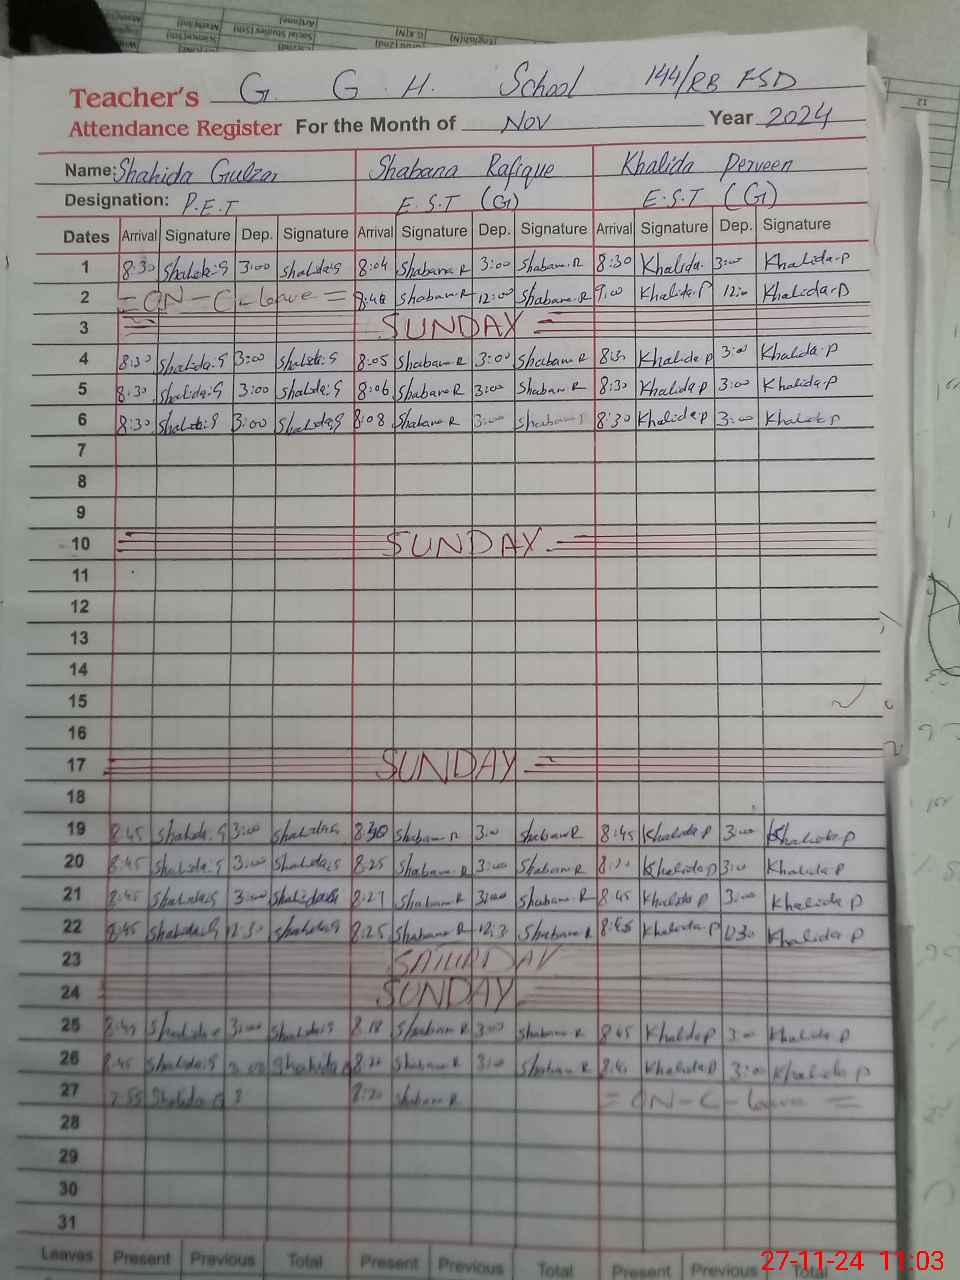 Teacher's G. G H. School 144/RB FSD
Attendance Register For the Month of Nov Year 2024
Name: Shahida Gulzar Shabana Rafique Khalida Perveen
Designation: P.E.T E.S.T (G) E.S.T (G)
Dates Arrival Signature Dep. Signature Arrival Signature Dep. Signature Arrival Signature Dep. Signature
1 8:30 Shahida.G 3:00 Shahida.G 8:04 Shabana R 3:00 Shabana.R 8:30 Khalida. 3:00 Khalida.P
2 = ON - C - leave = Shabana.R 12:00 Shabana.R 9:00 Khalida.P 12:00 Khalida.P
3 SUNDAY
4 8:30 Shahida.G 3:00 Shahida.G 8:05 Shabana R 3:00 Shabana R 8:30 Khalida P 3:00 Khalida.P
5 8:30 Shahida.G 3:00 Shahida.G 8:06 Shabana R 3:00 Shabana R 8:30 Khalida P 3:00 Khalida.P
6 8:30 Shahida.G 3:00 Shahida.G 8:08 Shabana R 3:00 Shabana 8:30 Khalida P 3:00 Khalida P
7
8
9
10 SUNDAY
11
12
13
14
15
16
17 SUNDAY
18
19 8:45 Shahida.G 3:00 Shahida G Shabana R 3:00 Shabana R 8:45 Khalida P 3:00 Khalida P
20 8:45 Shahida.G 3:00 Shahida.G 8:25 Shabana.R 3:00 Shabana R Khalida P 3:00 Khalida P
21 8:45 Shahida G 3:00 Shahida G 8:27 Shabana R 3:00 Shabana.R 8:45 Khalida P 3:00 Khalida P
22 8:45 Shahida.G 12:30 Shahida G 8:25 Shabana R 12:30 Shabana R 8:45 Khalida P 12:30 Khalida P
23 SATURDAY
24 SUNDAY
25 8:45 Shahida G 3:00 Shahida G 8:18 Shabana R 3:00 Shabana R 8:45 Khalida P 3:00 Khalida P
26 8:45 Shahida G 3:00 Shahida G 8:20 Shabana R 3:00 Shabana R 8:45 Khalida P 3:00 Khalida P
27 Shahida G 3 8:20 Shabana R = ON - C - leave =
28
29
30
31
Leaves Present Previous Total Present Previous Total Present Previous Total
27-11-24 11:03